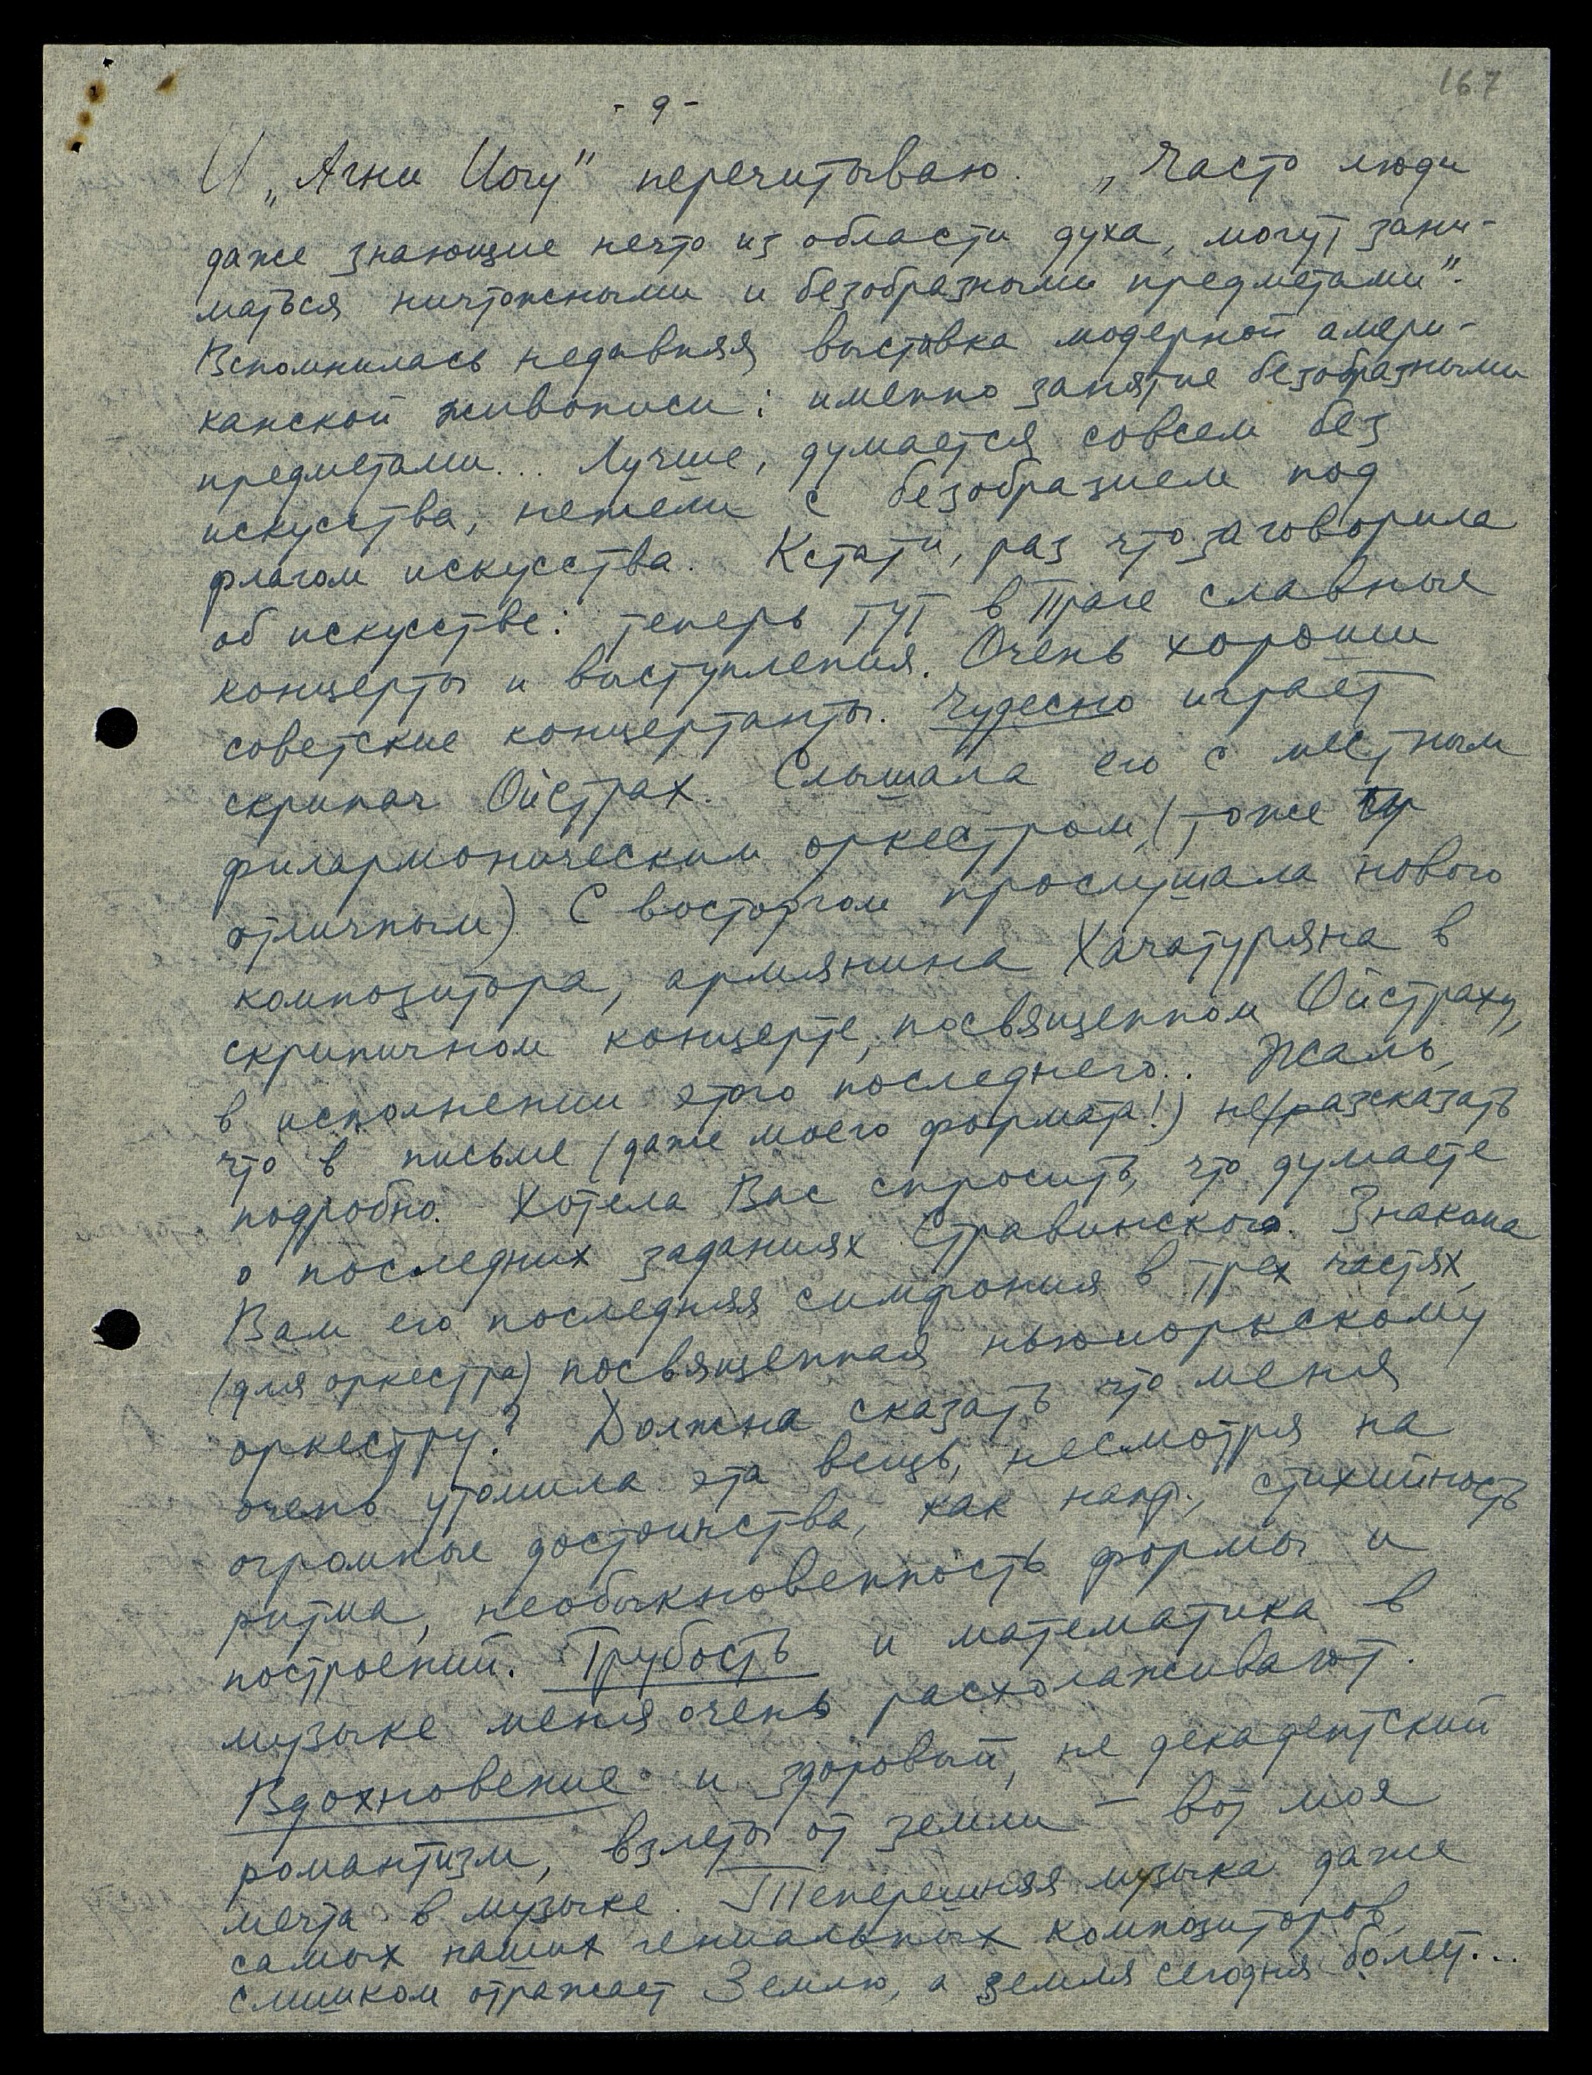 167
- 9 -
И „Агни Йогу" перечитываю. „Часто люди
даже знающие нечто из области духа, могут зани-
маться ничтожными и безобразными предметами".
Вспомнилась недавняя выставка модерной амери-
канской живописи: именно занятие безобразными
предметами... Лучше, думается совсем без
искусства, нежели с безобразием под
флагом искусства. Кстати, раз что заговорила
об искусстве: теперь тут в Праге славные
концерты и выступления. Очень хороши
советские концертанты. Чудесно играет
скрипач Ойстрах. Слышала его с местным
филармоническим оркестром, (тоже
отличным) С восторгом прослушала нового
композитора, армянина Хачатуряна в
скрипичном концерте, посвященном Ойстраху,
в исполнении этого последнего.. Жаль,
что в письме (даже моего формата!) не разсказать
подробно. Хотела Вас спросить, что думаете
о последних заданиях Стравинского. Знакома
Вам его последняя симфония в трех частях,
(для оркестра) посвященная ньюиоркскому
оркестру? Должна сказать что меня
очень утомила эта вещь, несмотря на
огромные достоинства, как напр., стихийность
ритма, необыкновенность формы и
построений. Грубость и математика в
музыке меня очень расхолаживают.
Вдохновение и здоровый, не декадентский
романтизм, взлеты от земли – вот моя
мечта в музыке. Теперешняя музыка даже
самых наших гениальных композиторов,
слишком отражает Землю, а земля сегодня болеет...